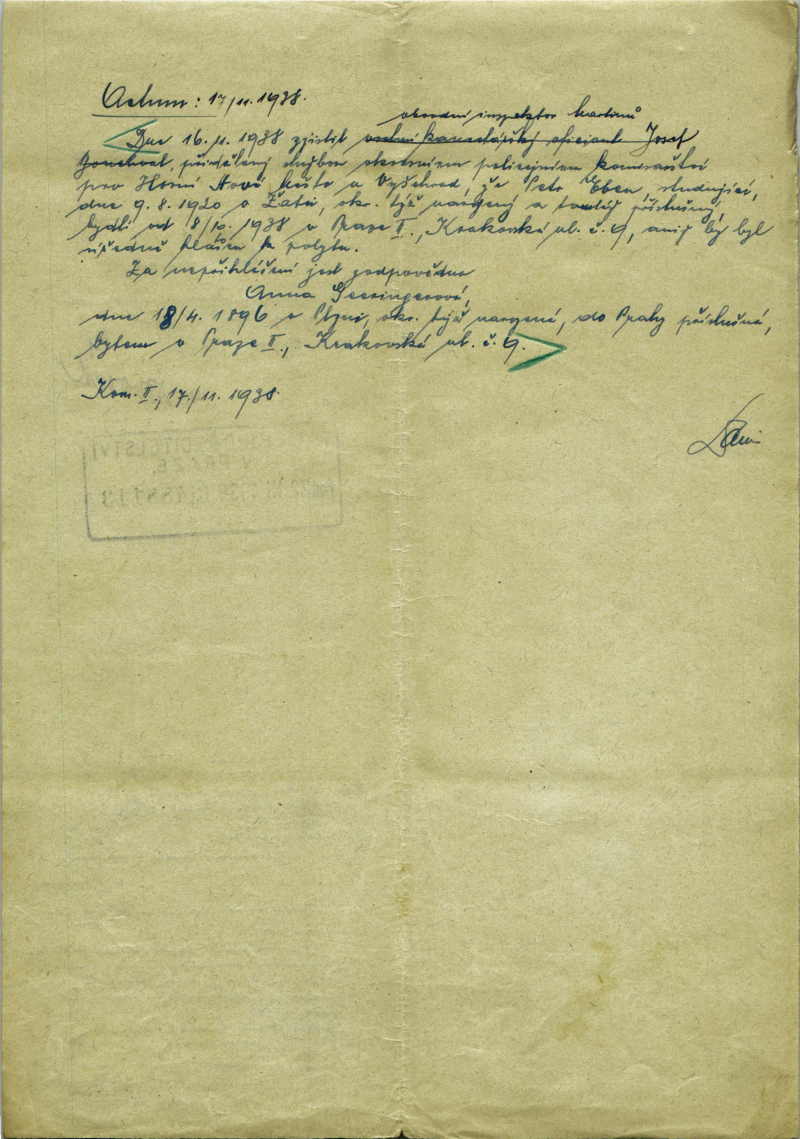 Actum: 17/11. 1938.
obvodní inspektor Martinů
Dne 16. 11. 1938 zjistil vrchní kancelářský oficiant Josef
přidělený službou okresnímu policejnímu komisařství
pro Horní Nové Město a Vyšehrad, že Petr Eben, studující,
dne 9. 8. 1920 v Žatci, okr. týž narozený a tamtéž příslušný,
bydlí od 18/10. 1938 v Praze II., Krakovská ul. č. 9, aniž by byl
úředně hlášen k pobytu.
Za nepřihlášení jest zodpovědna
Anna
dne 18/4. 1896 v Plzni, okr. týž narozená, do Prahy příslušná,
bytem v Praze II., Krakovská ul. č. 9.
Kom. II., 17./11. 1938.